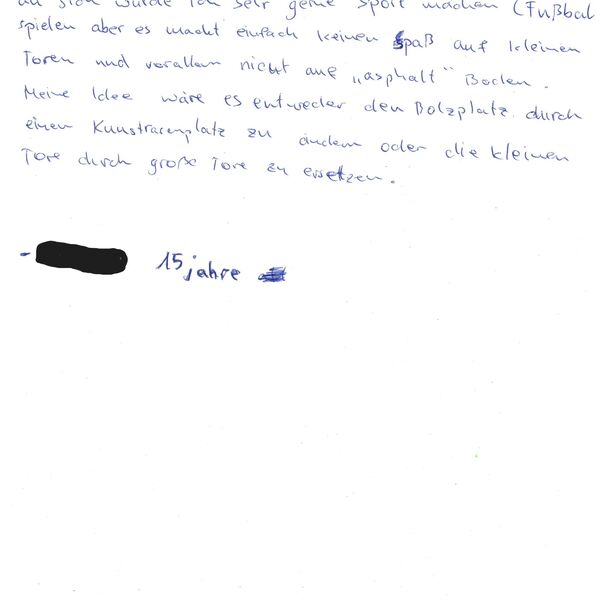 an sich würde ich sehr gerne Sport machen (Fußbal
spielen aber es macht einfach keinen Spaß auf kleinen
Toren und vorallem nicht auf „asphalt" Boden.
Meine Idee wäre es entweder den Bolzplatz durch
einen Kunstrasenplatz zu ändern oder die kleinen
Tore durch große Tore zu ersetzen.
- 15 jahre